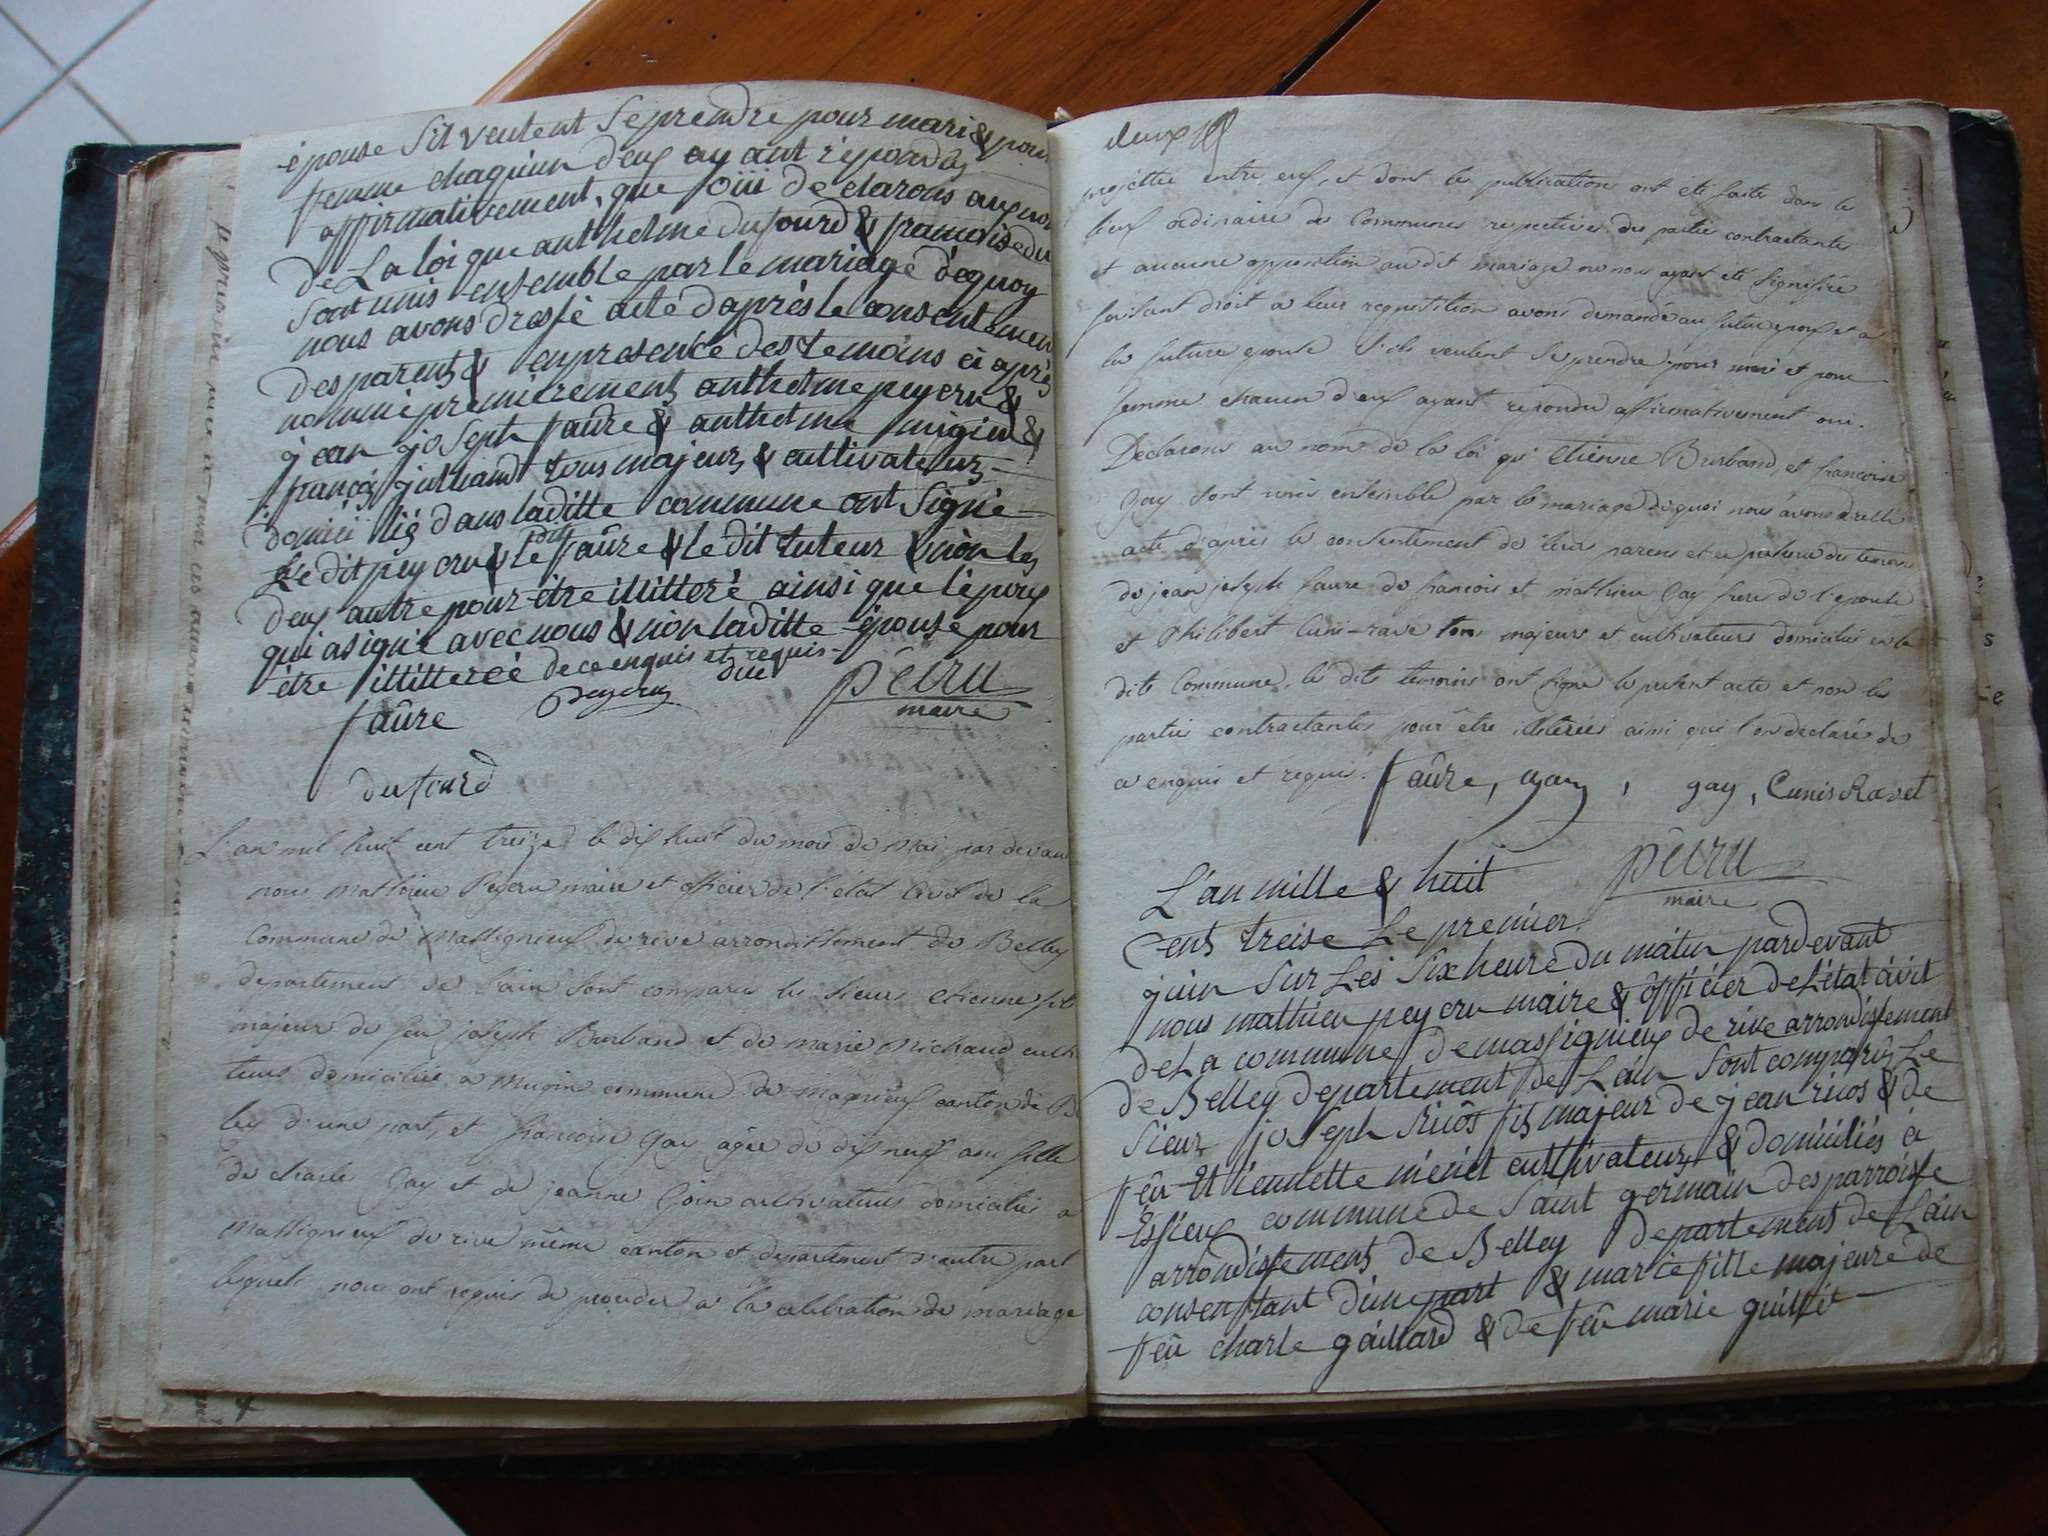 épouse Sil veulent Se prendre pour mari & pour
femme chaquun deux ay ant répondu
affirmativement, que oüi de clarons aux nom
De La loi que anthelme dufourd & francoise du
Sont unis ensemble par le mariage dequoy
nous avons dressé acte daprès le consentemen
des parents & en presence des temoins ci après
nommé premièrement anthelme peyeru &
jean joseph faure & anthelme &
françois julliand tous majeurs & cultivateurs
domicilié dans laditte commune ont Signé
Le dit peyeru & le dit faûre & le dit tuteur & non les
deux autre pour être illitteré ainsi que l'époux
qui a signé avec nous & non laditte épouse pour
être illitterée de ce enquis et requis
faûre peyeru pêiru
maire
dufourd
L'an mil huit cent treize le dix huit du mois de Mai par devan
nous Mathieu Peyeru maire et officier de l'état civil de la
Commune de Massignieux de rive arrondissement de Belley
departement de l'ain Sont comparu les Sieurs etienne fils
majeur de feu joseph Burband et de Marie Michaud culti
teurs domiciliés a Mugin commune de Magnieux canton de B
ley d'une part, et francoise Gay agée de dix neuf ans fille
de charle Gay et de jeanne Goin cultivateurs domiciliés a
Massignieux de rive même canton et departement d'autre part
lequels nous ont requis de proceder a la celebration du mariage
deux
projettée entre eux, et dont les publications ont été faite dans les
lieux ordinaire des Communes respectives des partie contractantes
et aucune opposition au dit mariage ne nous ayant eté Signifiée
faisant droit a leur requisition avons demandé au futur epoux et a
la future epouse S'ils veulent Se prendre pour mari et pour
femme chacun d'eux ayant repondu affirmativement oui.
Declarons au nom de la loi qu'etienne Burband et francoise
Gay Sont unis ensemble par le mariage dequoi nous avons dressé
acte d'après le consentement de leurs parens et en presence des temoins
de jean joseph faure de francois et mathieu Gay frere de l'epouse
et Philibert Cuni-rave tous majeurs et cultivateurs domiciliés en la
dite Commune, les dits temoins ont Signé le present acte et non les
parties contractantes pour être illiterées ainsi que l'on declaré de
ce enquis et requis. faûre, gay, gay, Cunis Ravet
L'an mille & huit pêiru
maire
cent treise Le premier
juin Sur Les Six heure du matin pardevant
nous mathieu peyeru maire & officier de L'état civil
de La commune de massignieux de rive arrondissement
de Belley departement de L'ain Sont comparus Le
Sieur joseph ricos fils majeur de jean ricos & de
feû Et iennette menet cultivateurs & domiciliés à
Essieux commune de Saint germain des parroisse
arrondissement de Belley departement de L'ain
consentant d'une part & marie fille majeure de
feû charle gaillard & de feû marie guillet